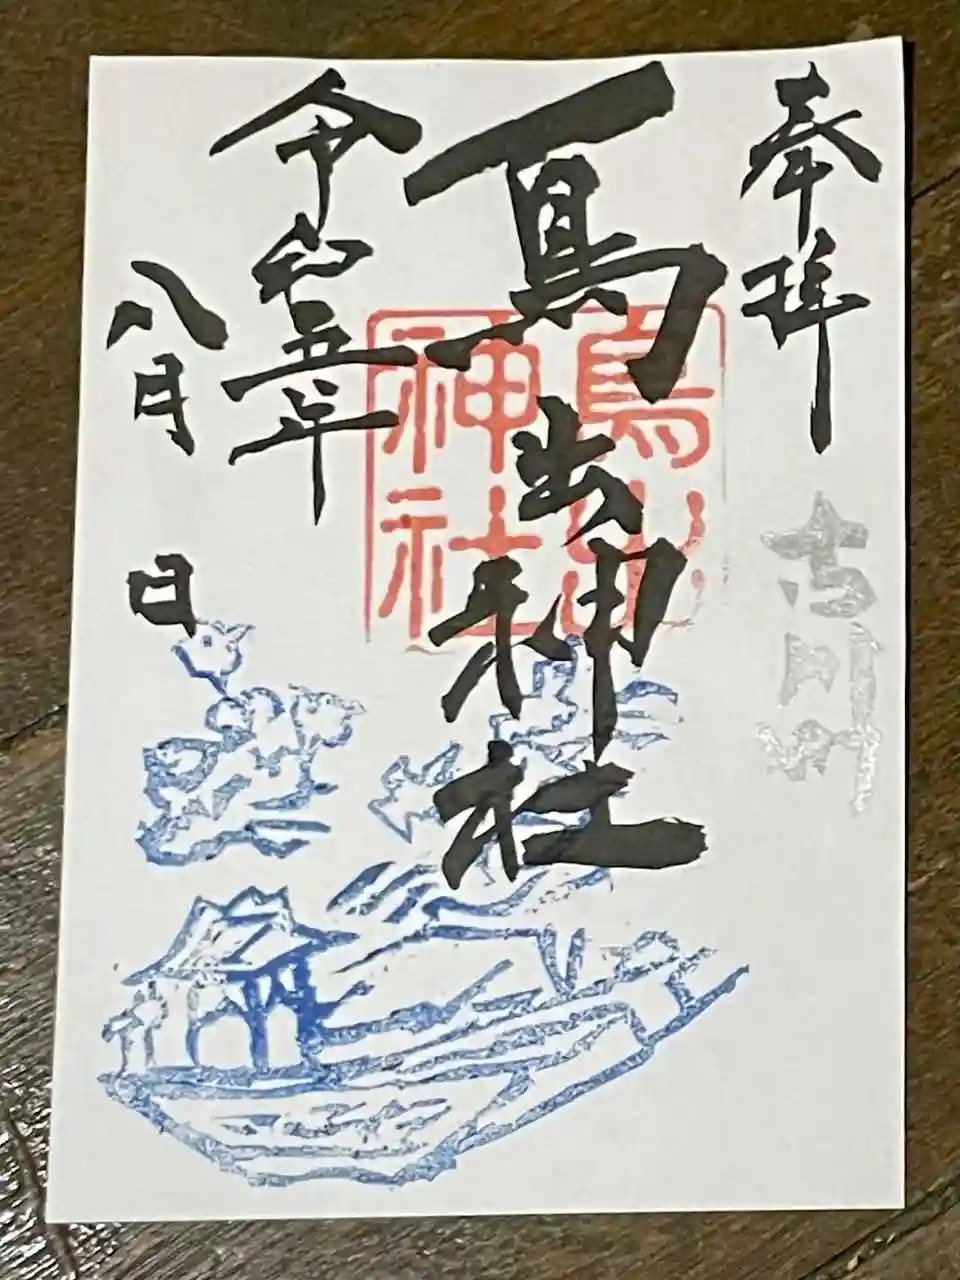 奉拝
古川町
鳥出神社
鳥出
神社
令和五年
八月 日